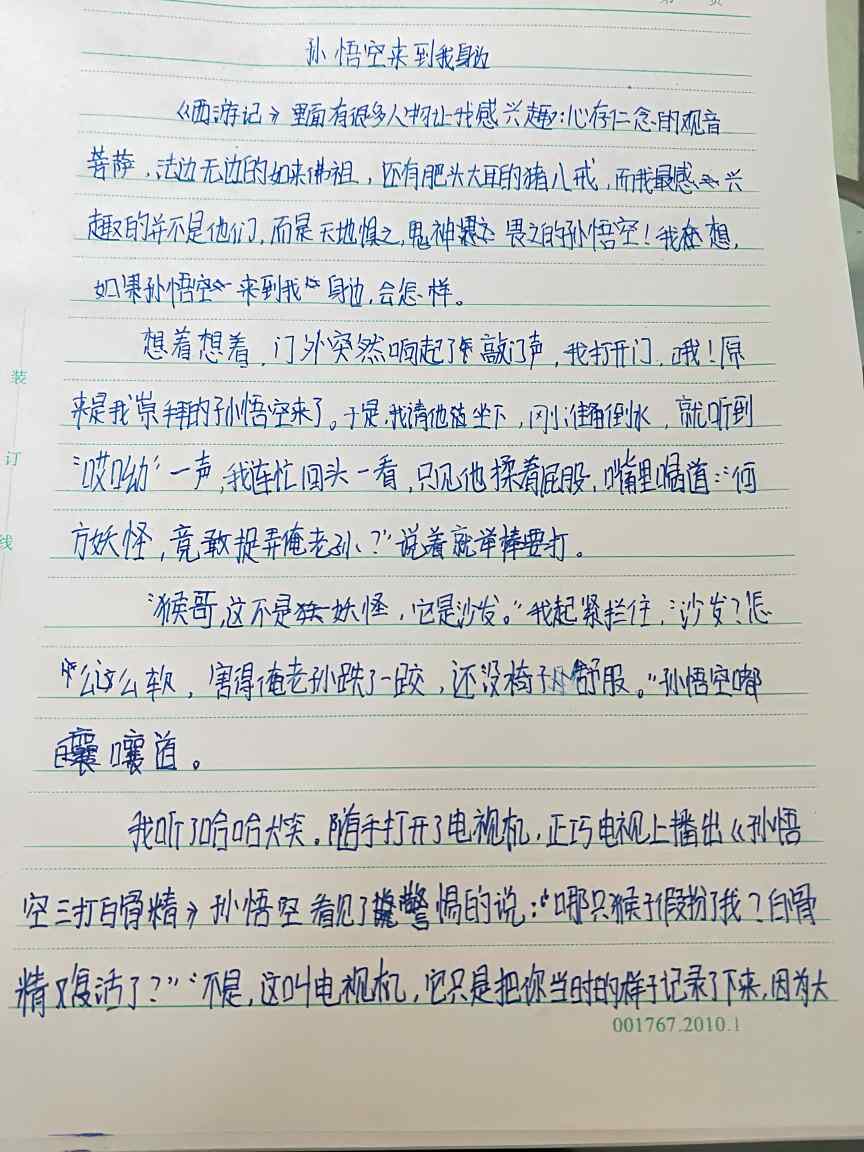 第 页
孙悟空来到我身边
《西游记》里面有很多人物让我感兴趣:心存仁念的观音
菩萨,法边无边的如来佛祖,还有肥头大耳的猪八戒,而我最感兴
趣的并不是他们,而是天地惧之,鬼神畏之的孙悟空!我在想,
如果孙悟空来到我身边,会怎样。
想着想着,门外突然响起了敲门声,我打开门,哦!原
来是我崇拜的孙悟空来了。于是,我请他坐下,刚准备倒水,就听到
“哎呦”一声,我连忙回头一看,只见他揉着屁股,嘴里喝道:“何
方妖怪,竟敢捉弄俺老孙?”说着就举棒要打。
“猴哥,这不是妖怪,它是沙发。”我起紧拦住,“沙发?怎
么这么软,害得俺老孙跌了一跤,还没椅子舒服。”孙悟空嘟
囔道。
我听了哈哈大笑。随手打开了电视机,正巧电视上播出《孙悟
空三打白骨精》孙悟空看见了警惕的说:“哪只猴子假扮了我?白骨
精又复活了?”“不是,这叫电视机,它只是把你当时的样子记录了下来,因为大
001767.2010.1
装
订
线